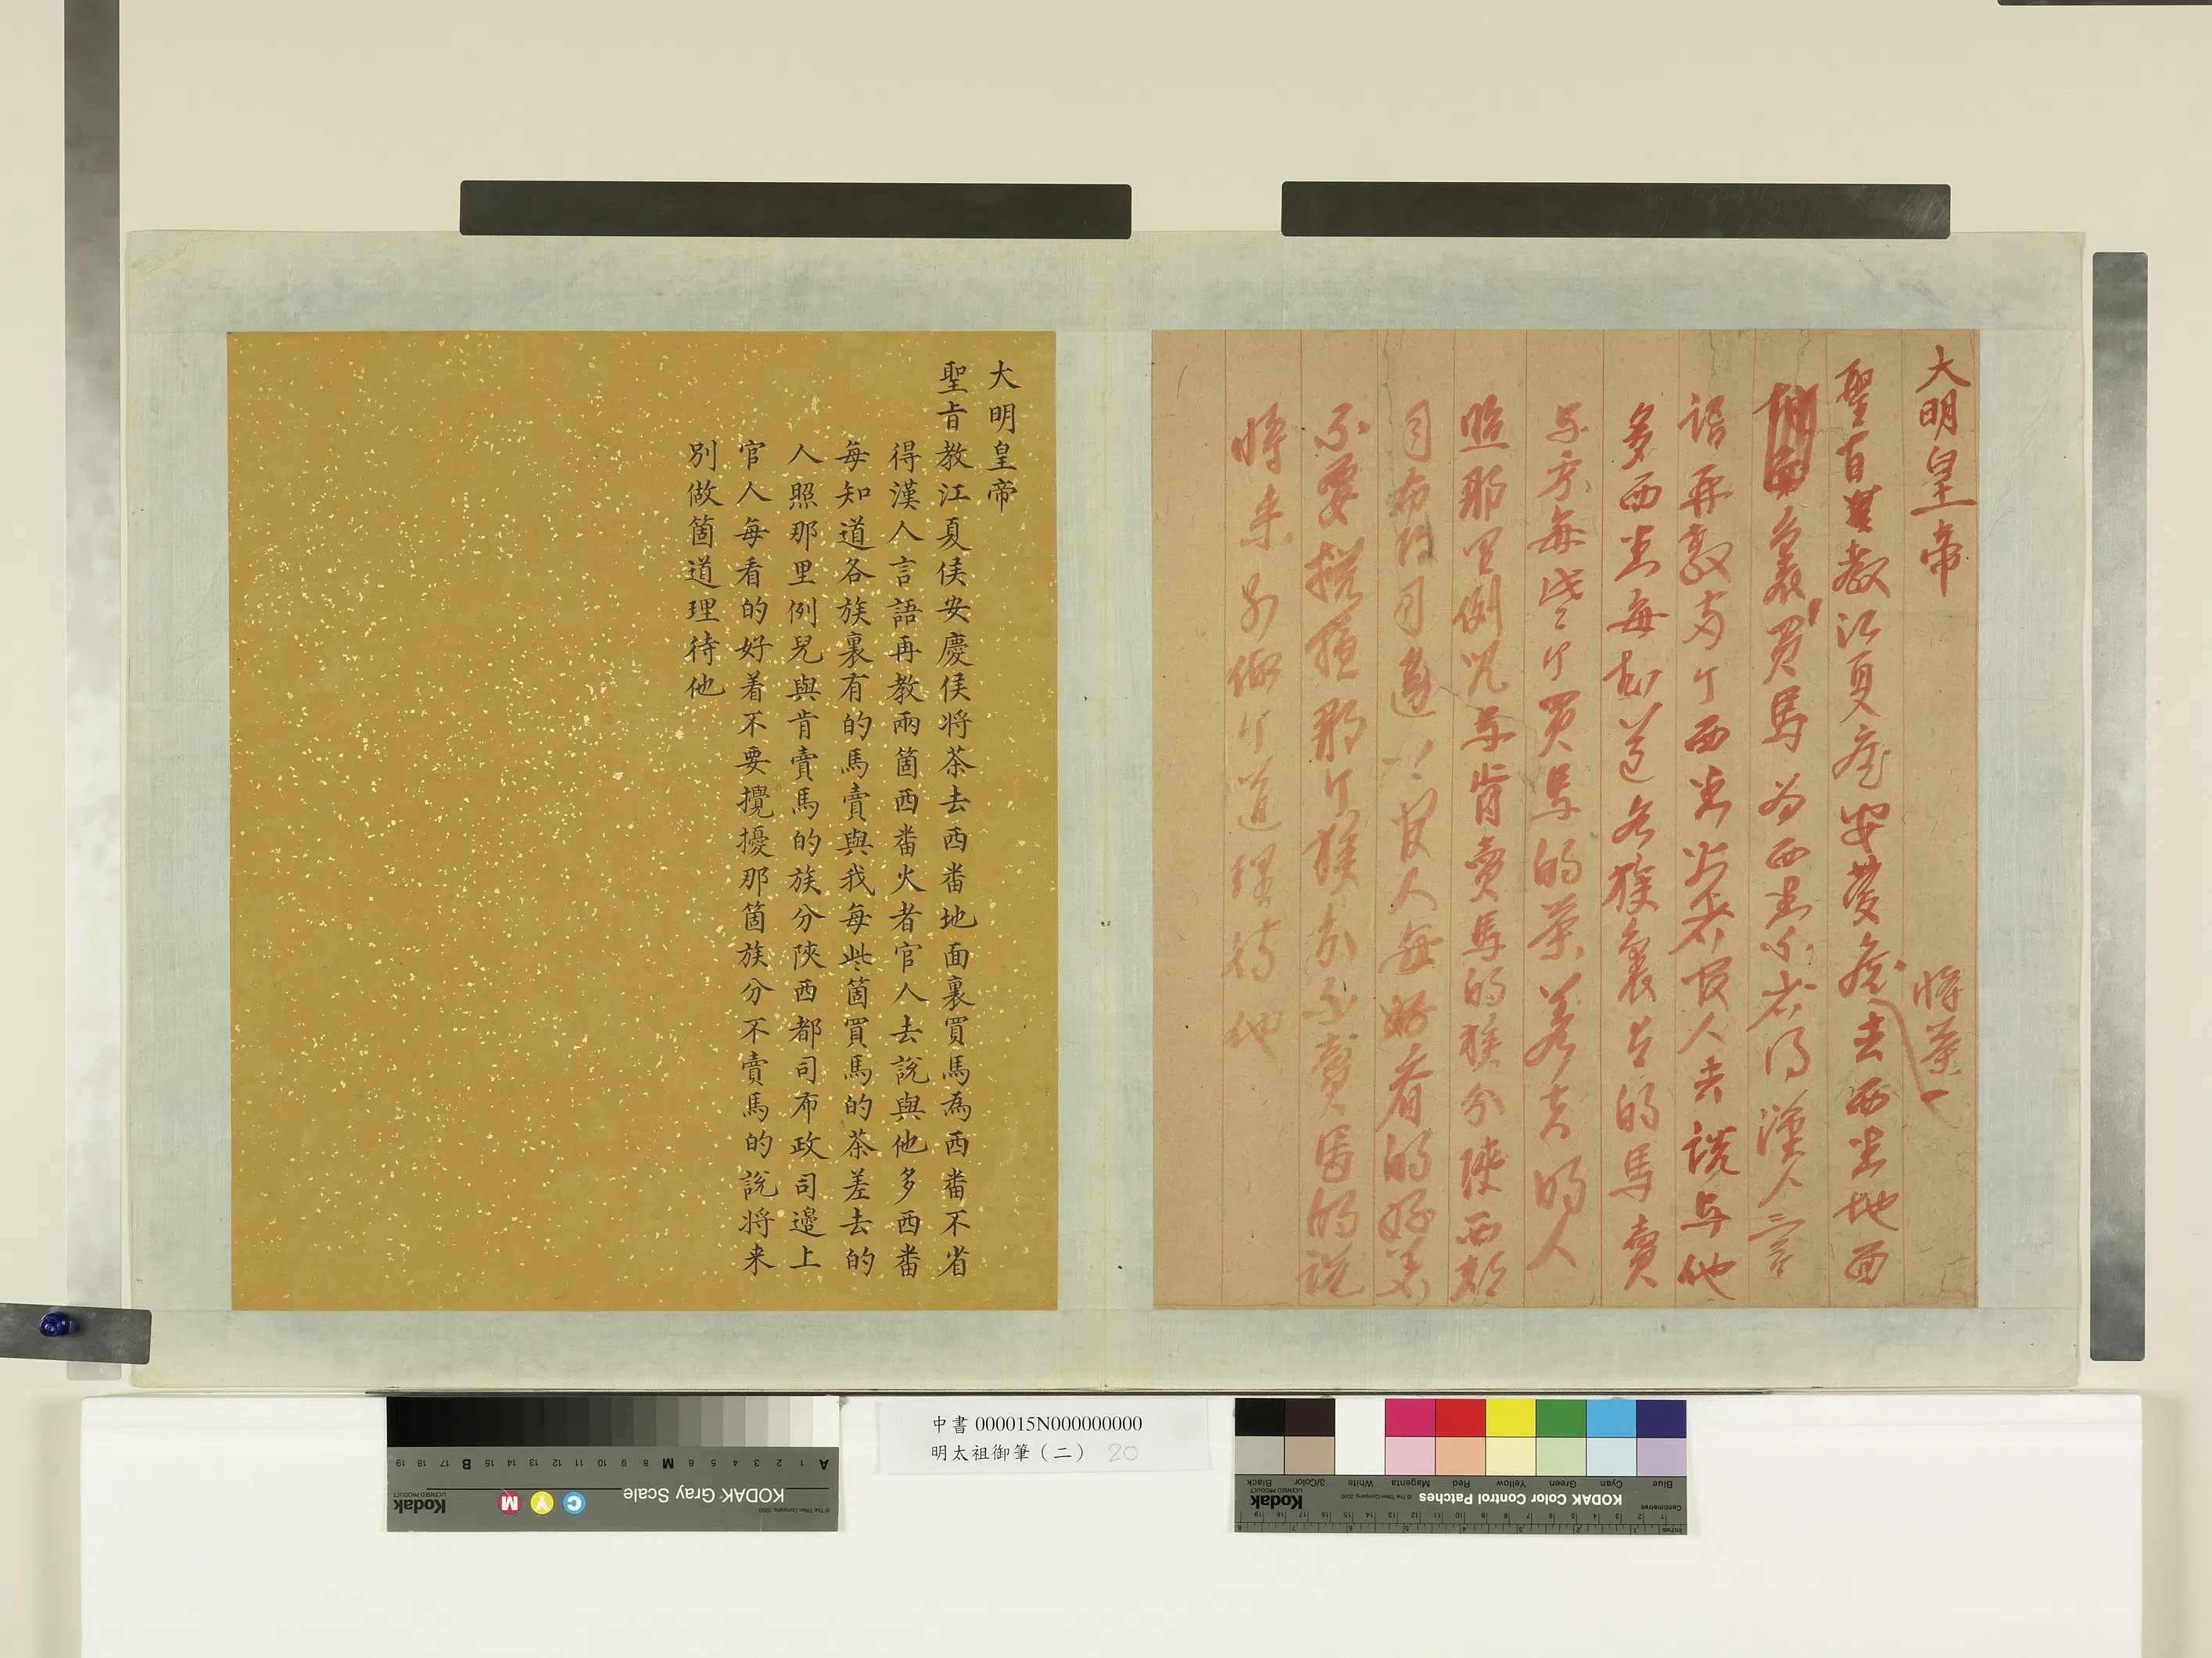 大明皇帝
將茶
聖旨教江夏侯安慶侯去西畨地面
裏買馬為西畨不省得漢人言
語再教兩个西畨火者官人去說与他
多西畨每知道各族裏有的馬賣
与我每些个買馬的茶差去的人
照那里例兒与肯賣馬的族分陝西都
司布政司邉上官人每好看的好着
不要攪擾那个族分不賣馬的說
將来別做个道理待他
大明皇帝
聖旨教江夏侯安慶侯将茶去西畨地面裏買馬為西畨不省
得漢人言語再教兩箇西畨火者官人去說與他多西畨
每知道各族裏有的馬賣與我每些箇買馬的茶差去的
人照那里例兒與肯賣馬的族分陝西都司布政司邉上
官人每看的好着不要攪擾那箇族分不賣馬的說将来
別做箇道理待他
中書 000015N000000000
明太祖御筆（二） 20
KODAK Gray Scale
Kodak
LICENSED PRODUCT
C Y M
© The Tiffen Company, 2000
A 1 2 3 4 5 6 M 8 9 10 11 12 13 14 15 B 17 18 19
KODAK Color Control Patches
Kodak
LICENSED PRODUCT
© The Tiffen Company, 2000
Blue Cyan Green Yellow Red Magenta White 3/Color Black
Centimetres
Inches